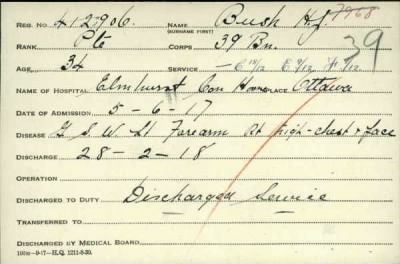 REG. NO. 412906. NAME Bush H.J. 7968
(SURNAME FIRST)
RANK Pte CORPS 39 Bn. 39
AGE 34 SERVICE - C 10/12 E 9/12 F 1/12
NAME OF HOSPITAL Elmhurst Con Home PLACE Ottawa
DATE OF ADMISSION 5-6-17
DISEASE G.S.W. Lt Forearm Rt thigh-chest & face
DISCHARGE 28-2-18
OPERATION
DISCHARGED TO DUTY Discharged Service
TRANSFERRED TO
DISCHARGED BY MEDICAL BOARD
100M-9-17-H.Q. 1211-8-30.